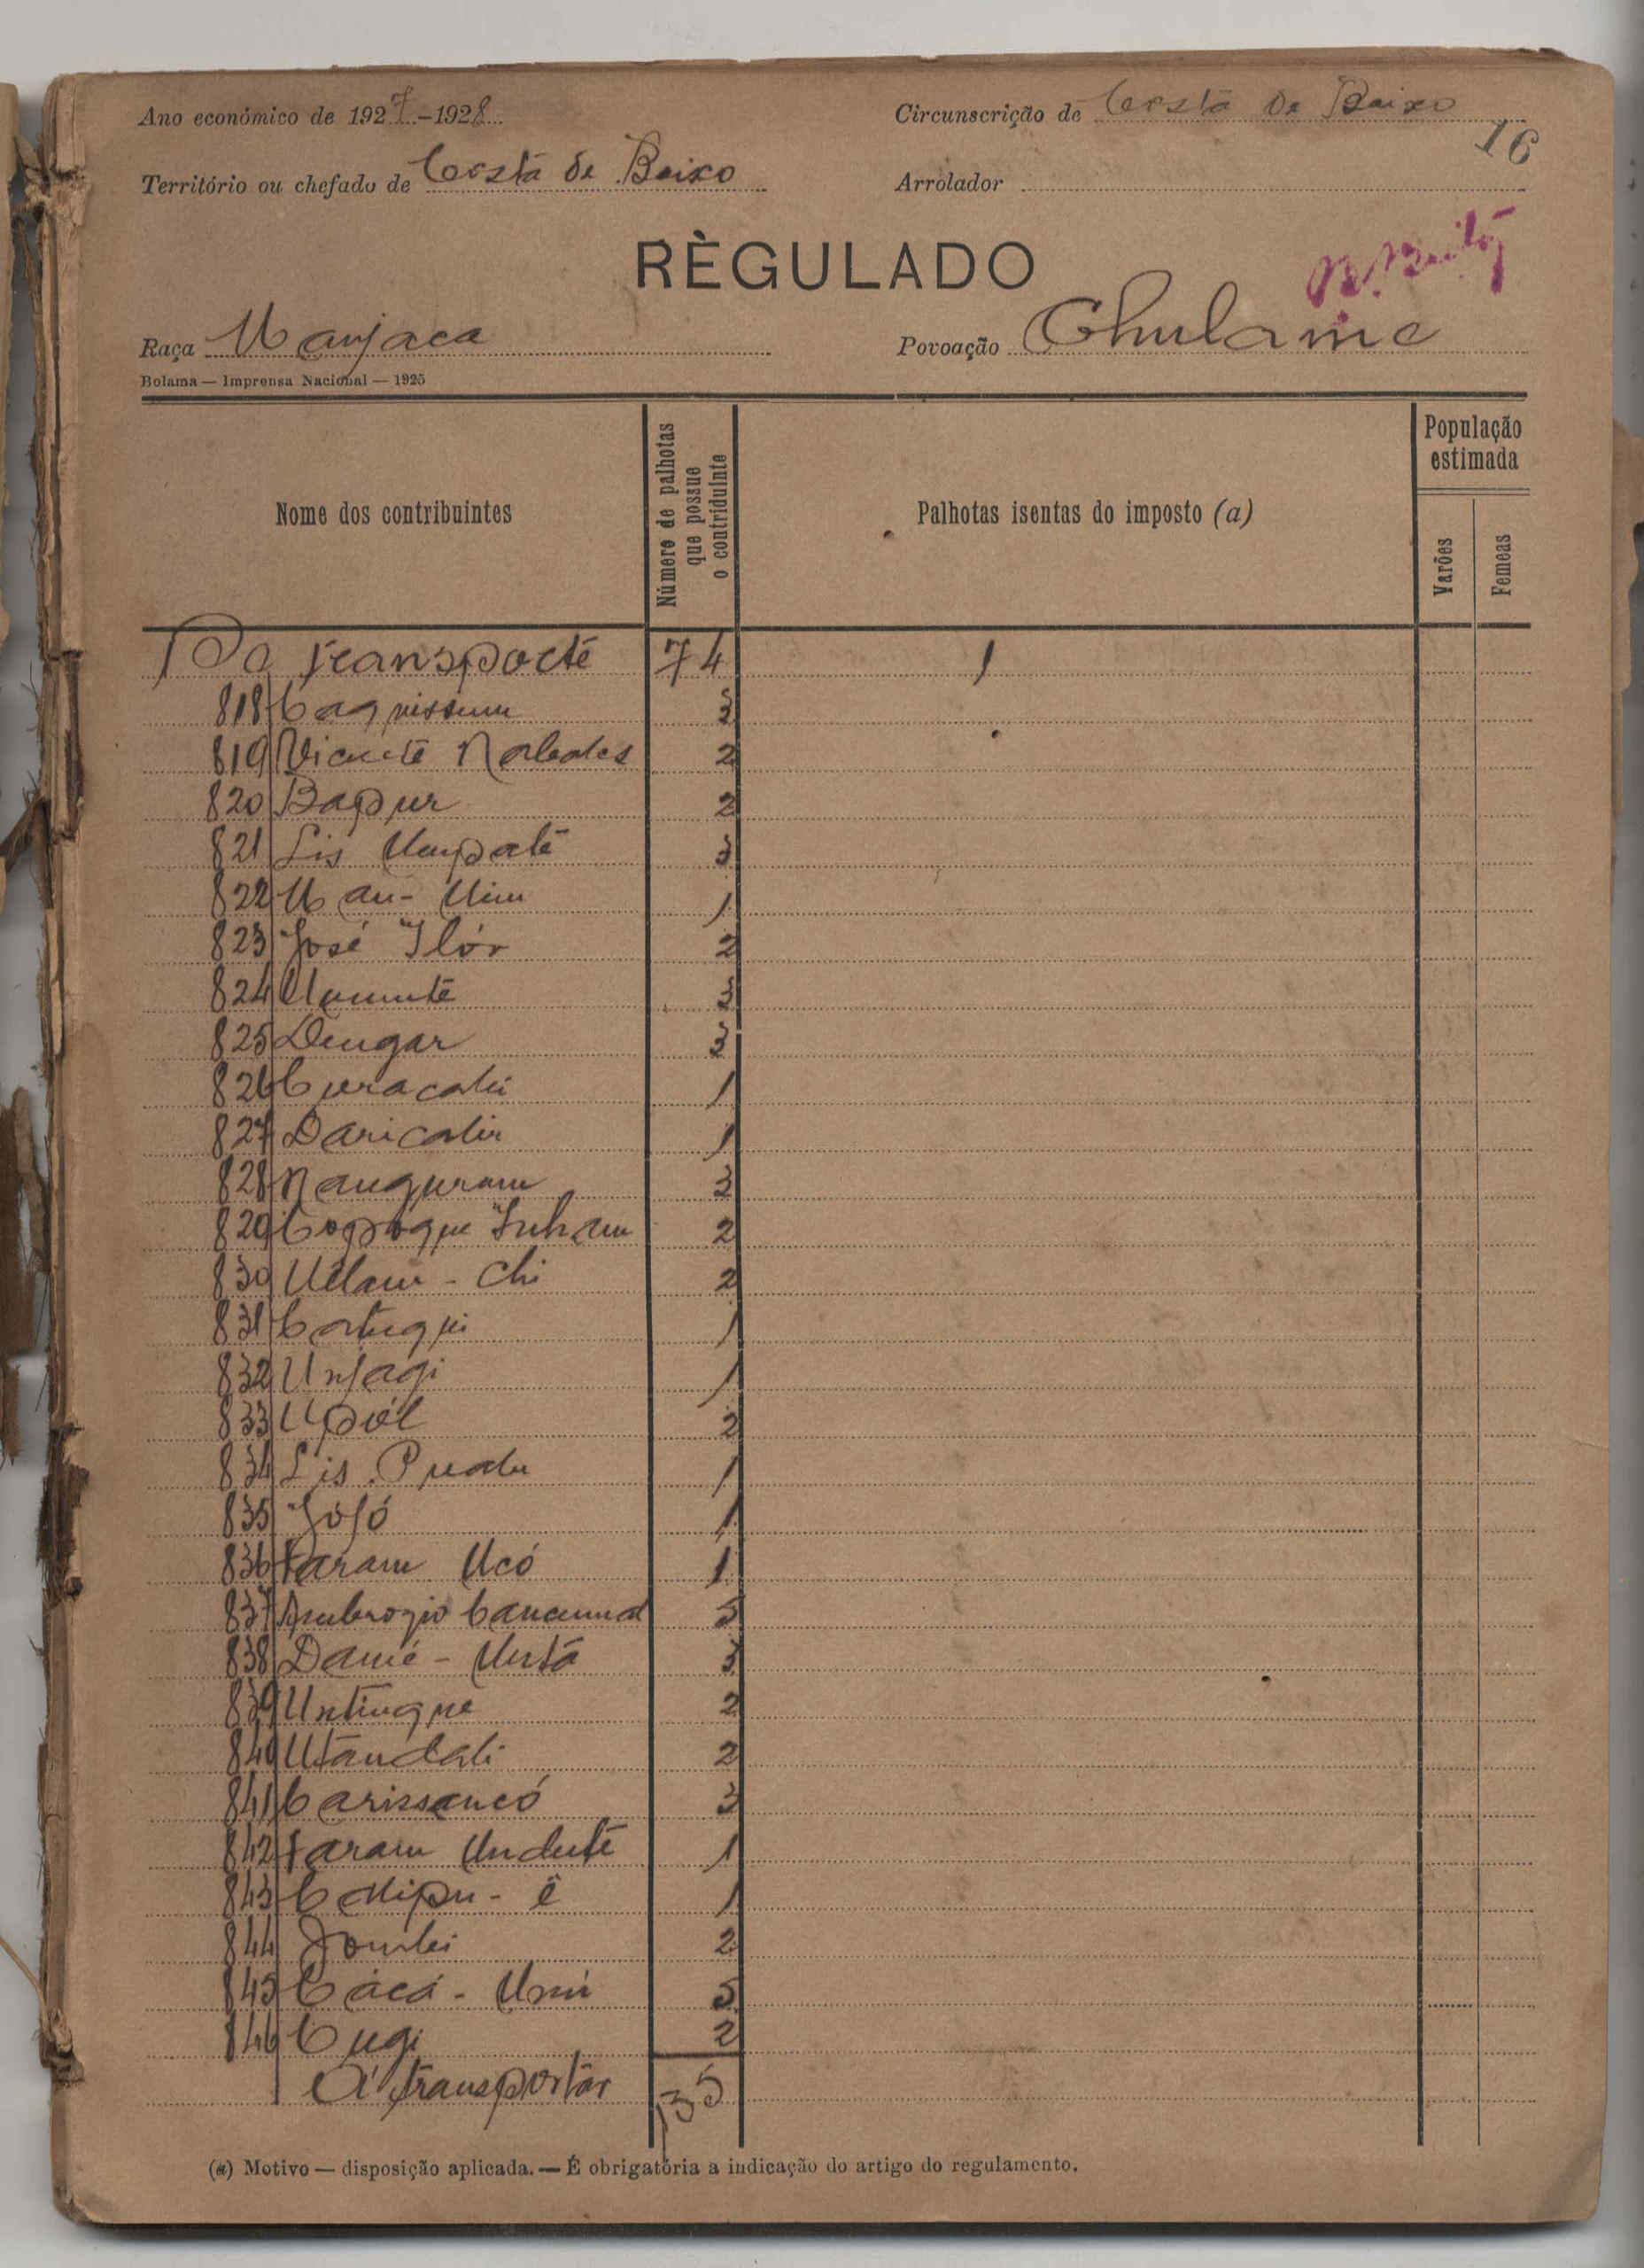 Ano económico de 1927-1928
Circunscrição de Costa de Baixo
16
Território ou chefado de Costa de Baixo
Arrolador
RÈGULADO
Raça Manjaca
Povoação Chulame
Bolama — Imprensa Nacional — 1925
Nome dos contribuintes
Número de palhotas que possue o contriduinte
Palhotas isentas do imposto (a)
População estimada
Varões
Femeas
Do transporte 74 1
818 Caquissum 3
819 Vicente 2
820 Bapur 2
821 Lis 3
822 1
823 José Flór 2
824 3
825 Dengar 3
826 1
827 1
828 Nanguram 3
829 2
830 Uélam - Chi 2
831 1
832 Unjagi 1
833 Upól 2
834 Lis 1
835 Jójó 1
836 Faram Ucó 1
837 Ambrozio 5
838 Damé - Untá 3
839 Untinque 2
840 2
841 Carissancó 3
842 Faram Undute 1
843 1
844 2
845 Cácá - 5
846 Cugi 2
A transportar 135
(a) Motivo — disposição aplicada. — É obrigatória a indicação do artigo do regulamento.